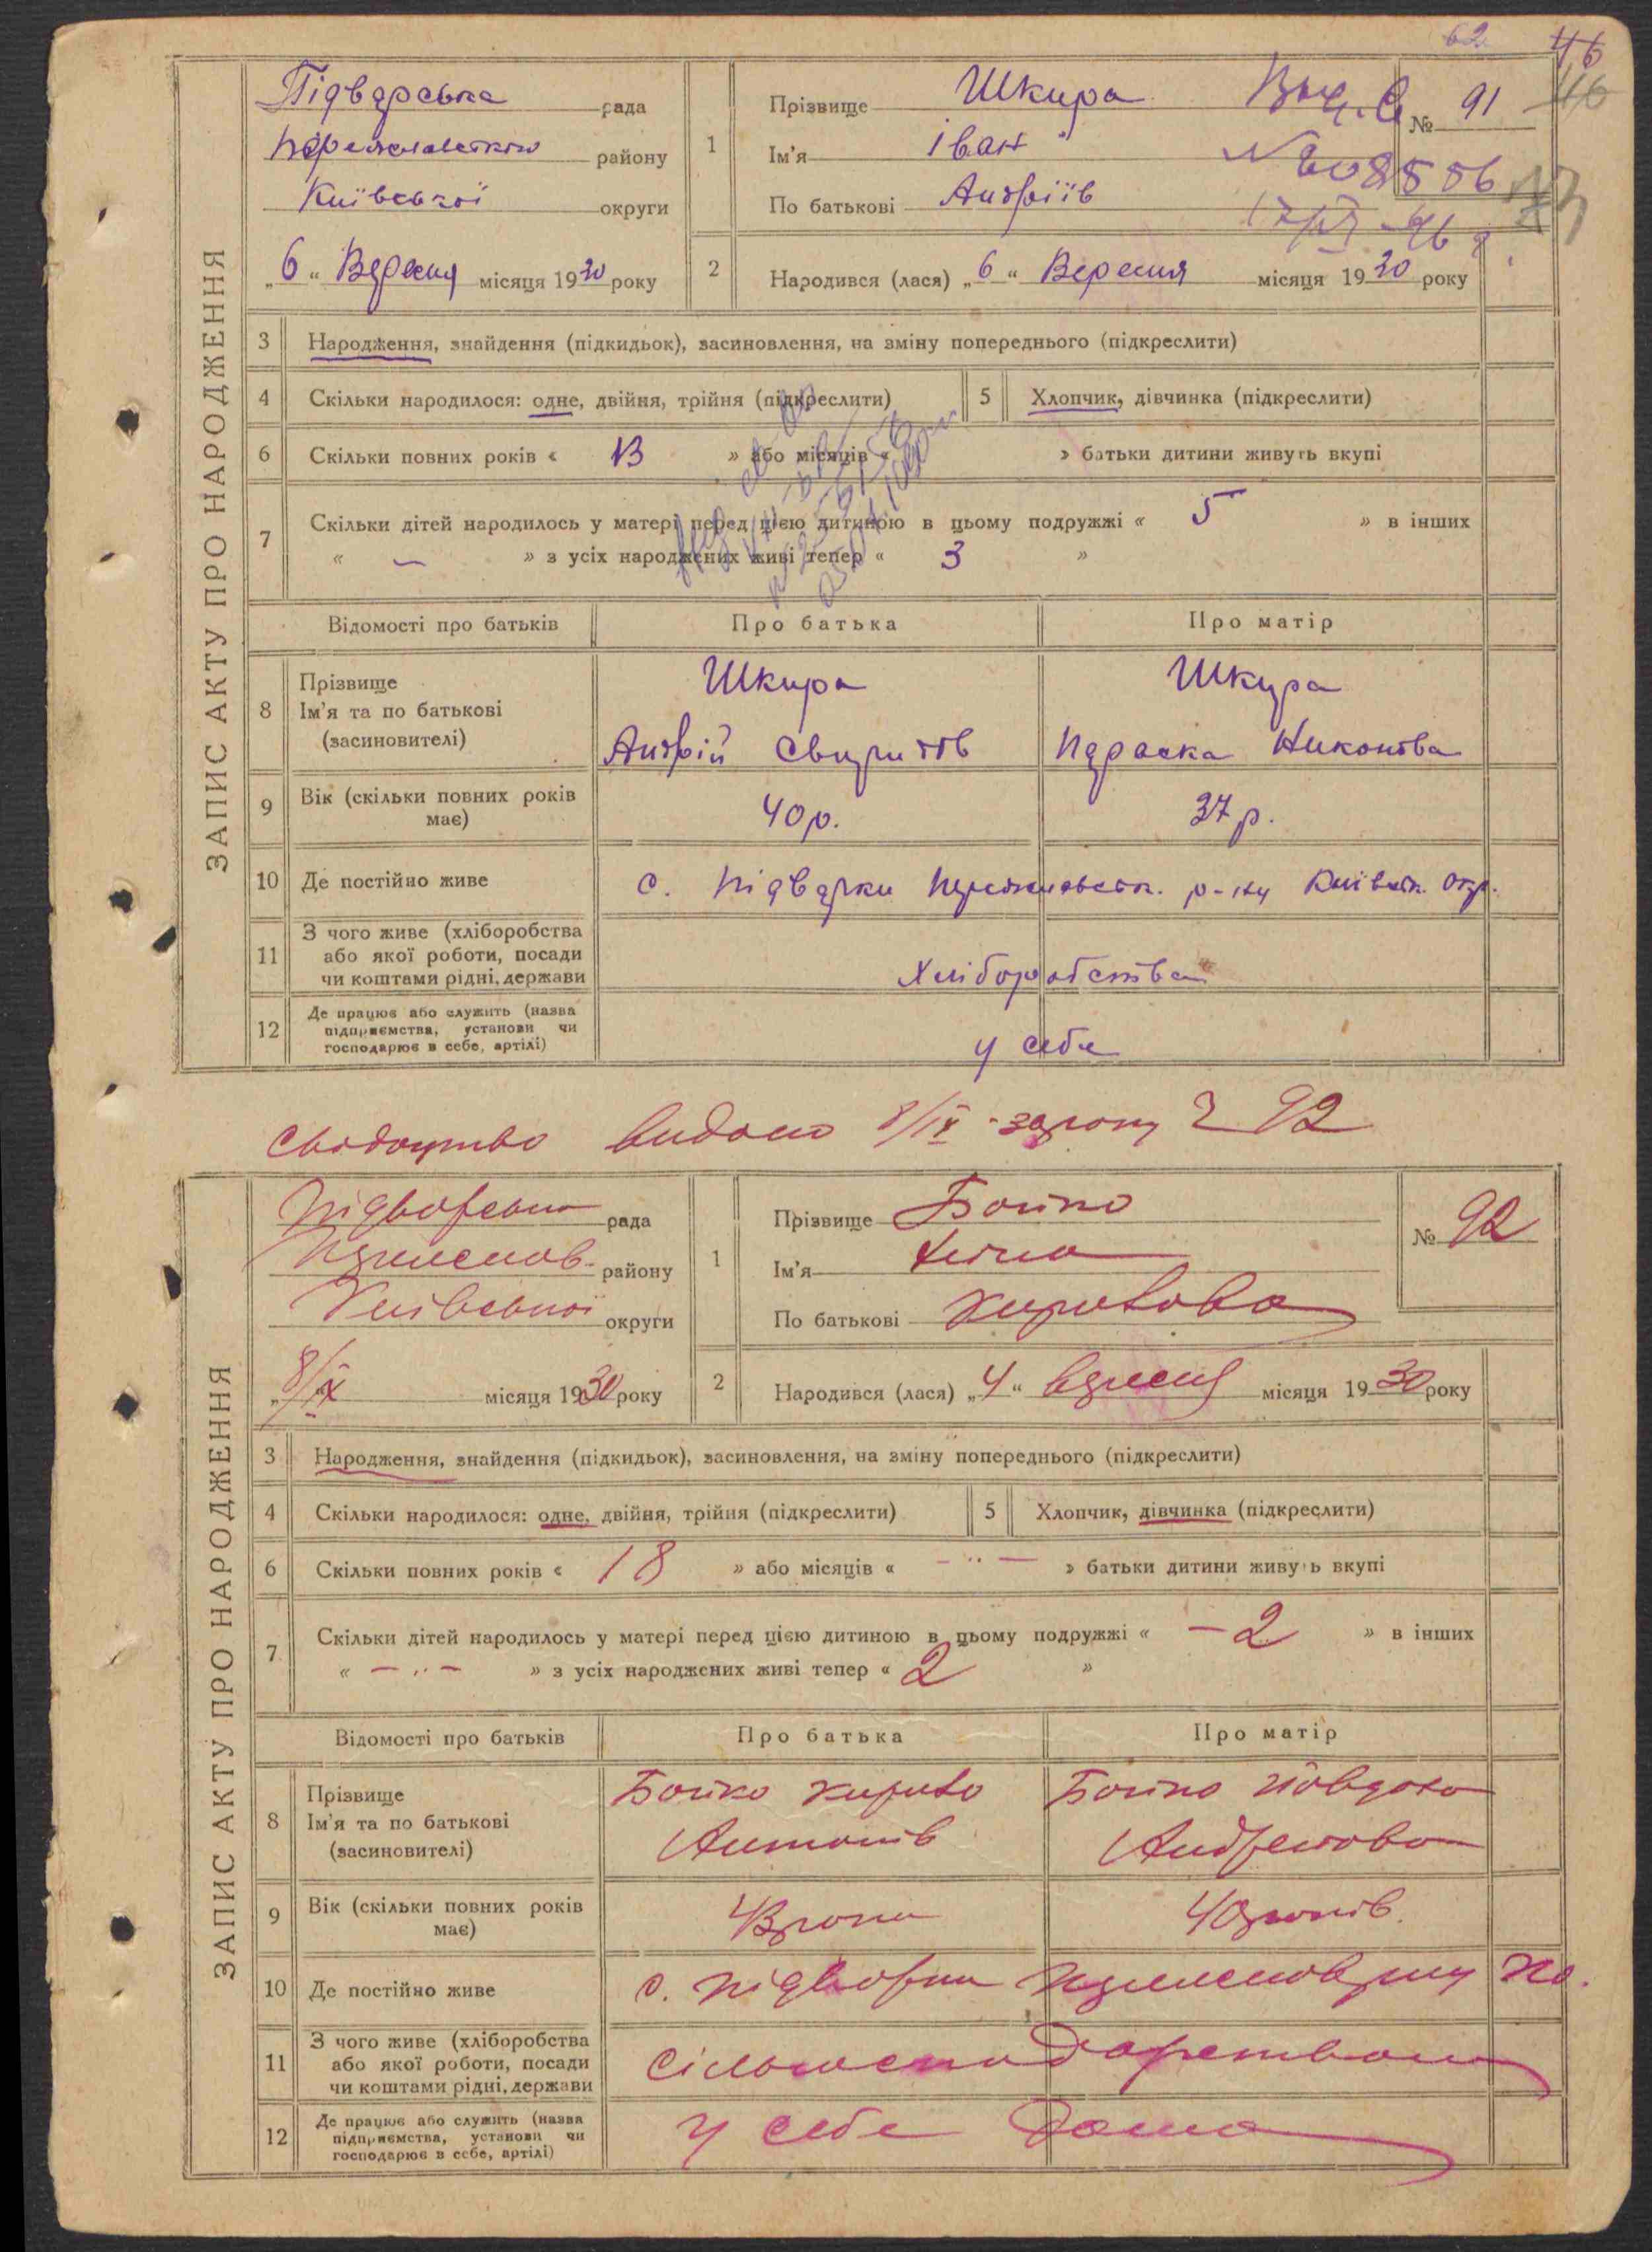 62
46
46
ЗАПИС АКТУ ПРО НАРОДЖЕННЯ
Підварська рада
району
Київської округи
„6“ Вересня місяця 1930 року
1
Прізвище Шкира
Ім'я Іван
По батькові Андріїв
№ 91
2
Народився (лася) „6“ Вересня місяця 1930 року
3 Народження, знайдення (підкидьок), засиновлення, на зміну попереднього (підкреслити)
4 Скільки народилося: одне, двійня, трійня (підкреслити)
5 Хлопчик, дівчинка (підкреслити)
6 Скільки повних років « 13 » або місяців « » батьки дитини живуть вкупі
7 Скільки дітей народилось у матері перед цією дитиною в цьому подружжі « 5 » в інших
« — » з усіх народжених живі тепер « 3 »
Відомості про батьків Про батька Про матір
8 Прізвище
Ім'я та по батькові
(засновителі)
Шкира
Андрій Свиридів
Шкура
Параска Никонова
9 Вік (скільки повних років
має)
40 р. 37 р.
10 Де постійно живе с. Підварки р-ну Київськ. окр.
11 З чого живе (хліборобства
або якої роботи, посади
чи коштами рідні, держави
Хліборобства
12 Де працює або служить (назва
підприємства, установи чи
господарює в себе, артілі)
у себе
Свідоцтво видано 8/IX 92
ЗАПИС АКТУ ПРО НАРОДЖЕННЯ
рада
району
Київської округи
8/IX місяця 1930 року
1
Прізвище Бойко
Ім'я
По батькові
№ 92
2
Народився (лася) „4“ вересня місяця 1930 року
3 Народження, знайдення (підкидьок), засиновлення, на зміну попереднього (підкреслити)
4 Скільки народилося: одне, двійня, трійня (підкреслити)
5 Хлопчик, дівчинка (підкреслити)
6 Скільки повних років « 18 » або місяців « — " — » батьки дитини живуть вкупі
7 Скільки дітей народилось у матері перед цією дитиною в цьому подружжі « — 2 » в інших
« — " — » з усіх народжених живі тепер « 2 »
Відомості про батьків Про батька Про матір
8 Прізвище
Ім'я та по батькові
(засиновителі)
Бойко Кирило
Антонів
Бойко
9 Вік (скільки повних років
має)
40 років
10 Де постійно живе с. Підварки
11 З чого живе (хліборобства
або якої роботи, посади
чи коштами рідні, держави
12 Де працює або служить (назва
підприємства, установи чи
господарює в себе, артілі)
у себе дома